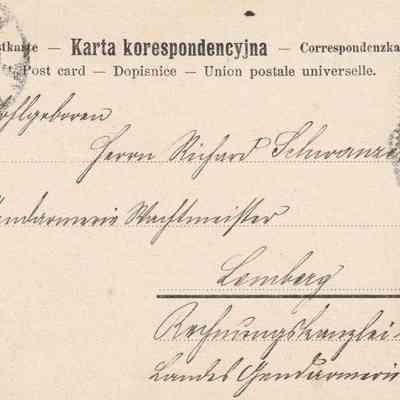 stkarte — Karta korespondencyjna — Correspondenzka
Post card — Dopisnice — Union postale universelle.
ohlgeboren
Herrn Richard Schwanze
endarmerie Wachtmeister
Lemberg
Rechnungskanzlei
Landes Gendarmerie